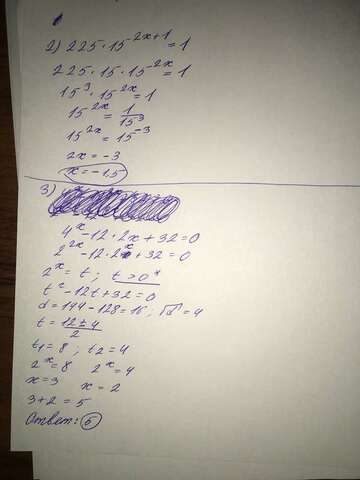 2) 225·15^(-2x+1)=1
225·15·15^(-2x)=1
15^3·15^(2x)=1
15^(2x)=1/15^3
15^(2x)=15^(-3)
2x=-3
x=-1.5
3)
4^x-12·2x+32=0
2^(2x)-12·2^x+32=0
2^x=t; t>0
t^2-12t+32=0
d=144-128=16; √d=4
t=(12±4)/2
t1=8; t2=4
2^x=8 2^x=4
x=3 x=2
3+2=5
Ответ: 5